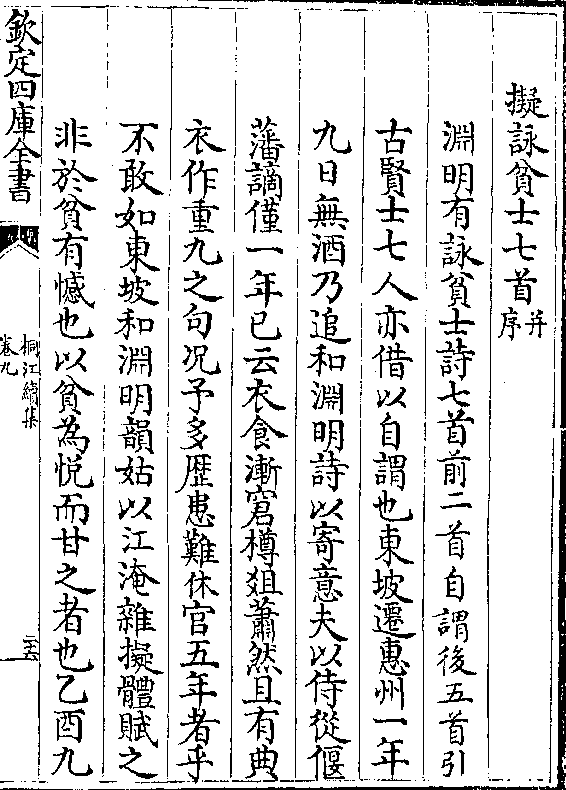 擬詠貧士七首并序
淵明有詠貧士詩七首前二首自謂後五首引
古賢士七人亦借以自謂也東坡遷惠州一年
九日無酒乃追和淵明詩以寄意夫以侍從偃
藩謫僅一年已云衣食漸窘樽俎蕭然且有典
衣作重九之句况予多歷患難休官五年者乎
不敢如東坡和淵明韻姑以江淹雜擬體賦之
非於貧有憾也以貧為悦而甘之者也乙酉九
欽定四庫全書
桐江續集
卷九